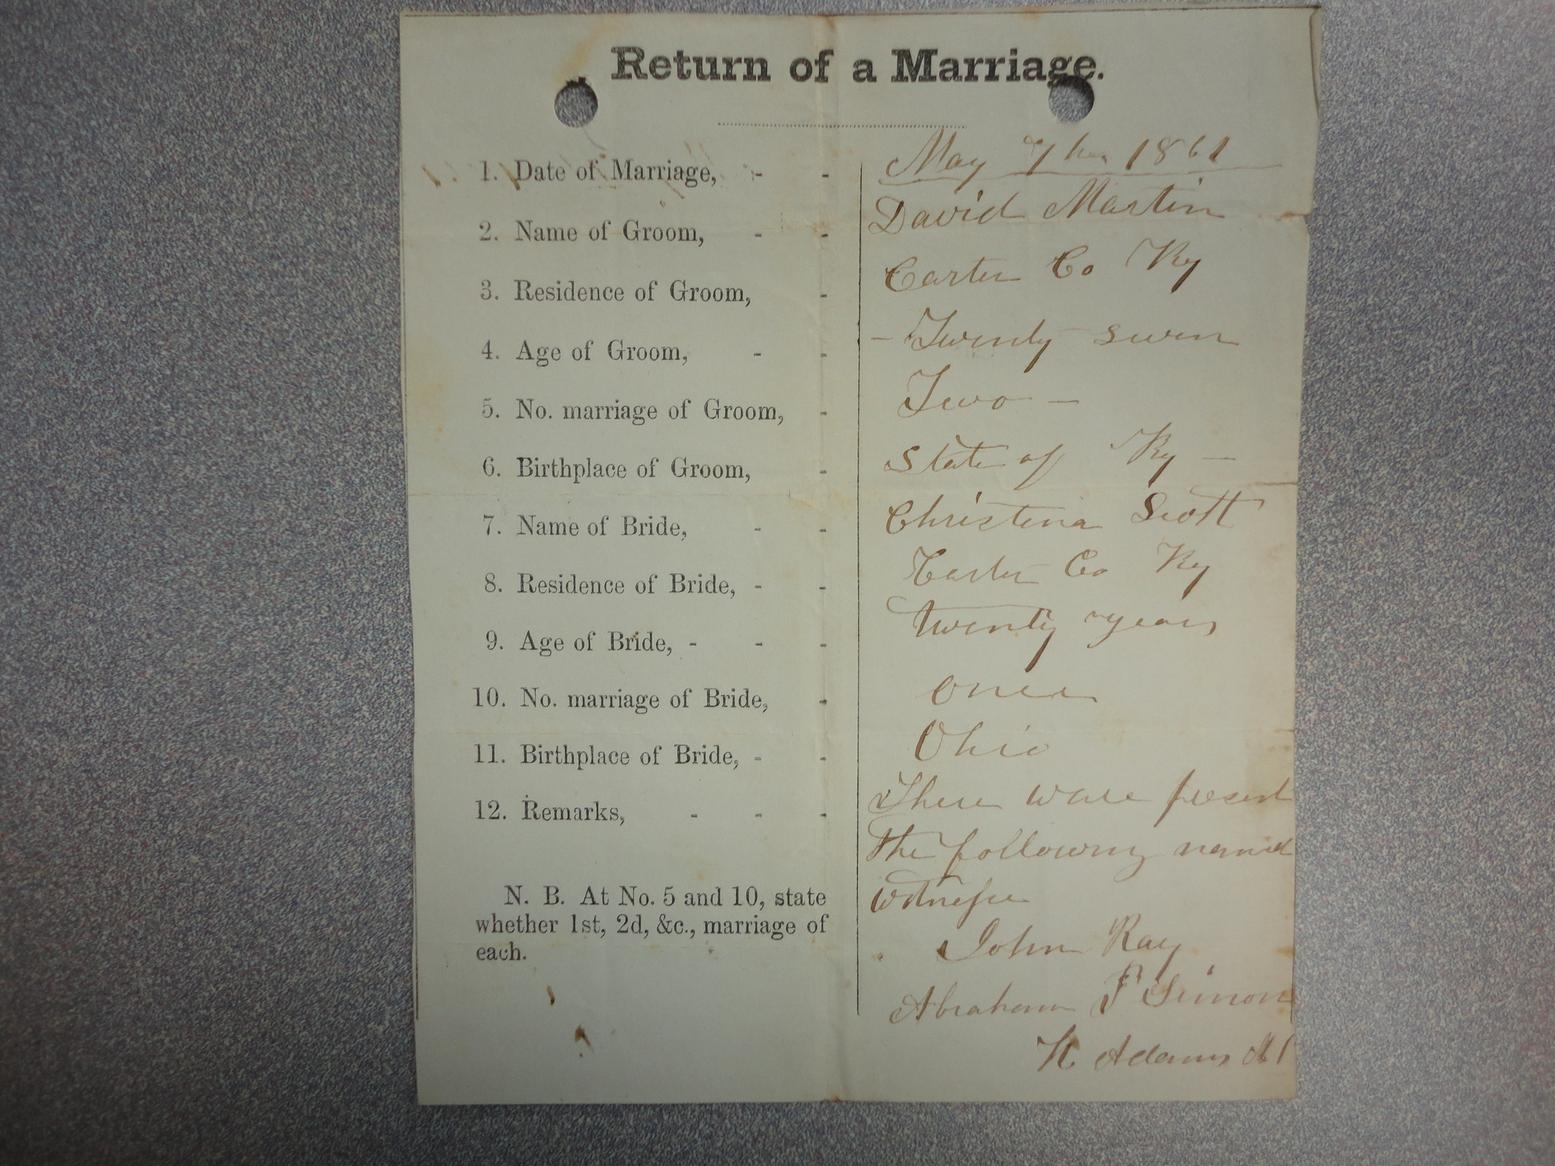 Return of a Marriage.
1. Date of Marriage, - - May 7th 1861
2. Name of Groom, - - David Martin
3. Residence of Groom, - Carter Co Ky
4. Age of Groom, - - Twenty seven
5. No. marriage of Groom, - Two
6. Birthplace of Groom, - State of Ky
7. Name of Bride, - - Christena Scott
8. Residence of Bride, - - Carter Co Ky
9. Age of Bride, - - - twenty years
10. No. marriage of Bride, - once
11. Birthplace of Bride, - - Ohio
12. Remarks, - - - There ware present
the following named
witness
N. B. At No. 5 and 10, state
whether 1st, 2d, &c., marriage of
each.
John Ray
Abraham Simon
Adams